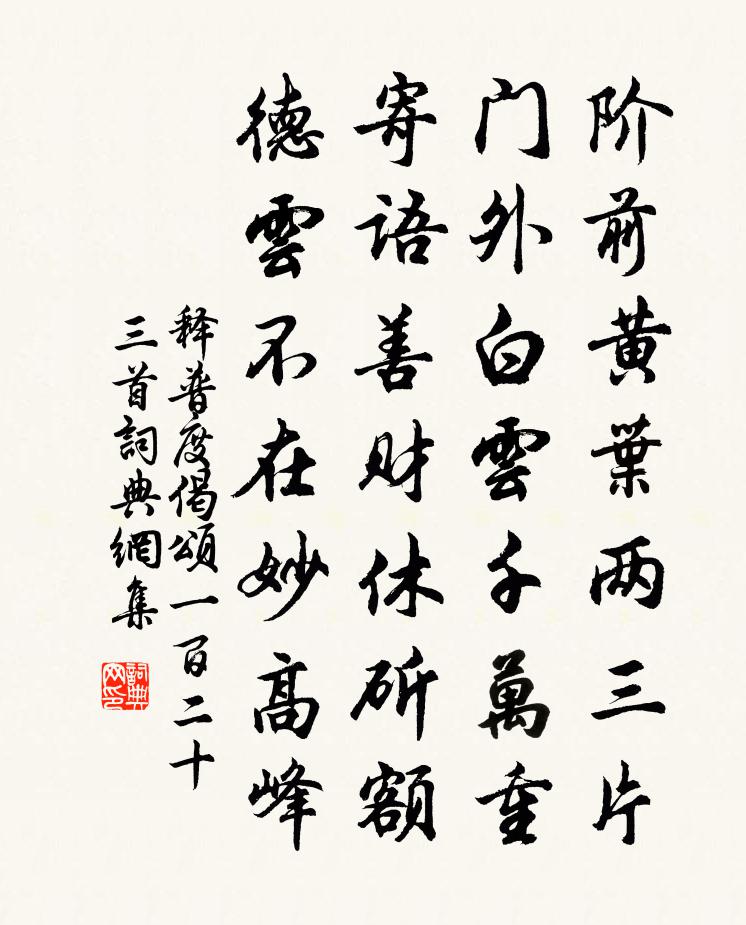 阶前黄葉两三片
门外白雲千萬重
寄语善财休斫额
德雲不在妙高峰
释普度偈颂一百二十
三首詞典網集
詞典网印